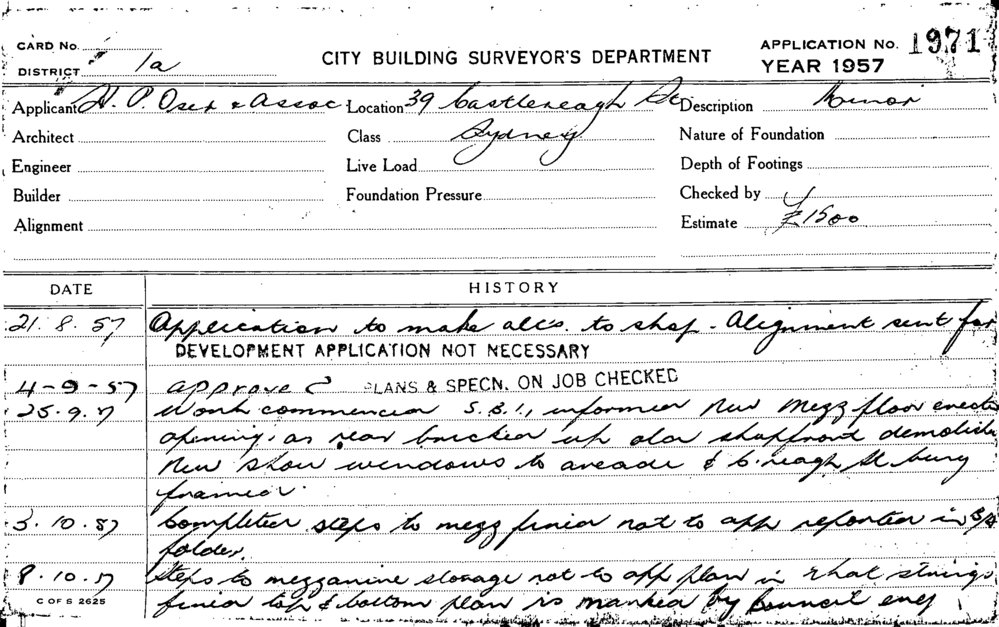 CARD No.
DISTRICT 1a
CITY BUILDING SURVEYOR'S DEPARTMENT
APPLICATION No. 1971
YEAR 1957
Applicant H. P. Oser & Assoc Location 39 Castlereagh St Description Minor
Architect Class Sydney Nature of Foundation
Engineer Live Load Depth of Footings
Builder Foundation Pressure Checked by
Alignment Estimate £1500
DATE HISTORY
21.8.57 Application to make alts. to shop - Alignment sent for
DEVELOPMENT APPLICATION NOT NECESSARY
4-9-57 approved PLANS & SPECN. ON JOB CHECKED
25.9.57 Work commenced S.B.I., informed New Mezz floor erected
opening, as rear bricked up old shopfront demolished
New show windows to arcade & C.reagh St being
framed.
3.10.57 Completed steps to mezz fixed not to app reported in
folder.
8.10.57 Steps to mezzanine storage not to app plan in that strings
fixed top & bottom plan is marked by Council eng
C OF S 2625